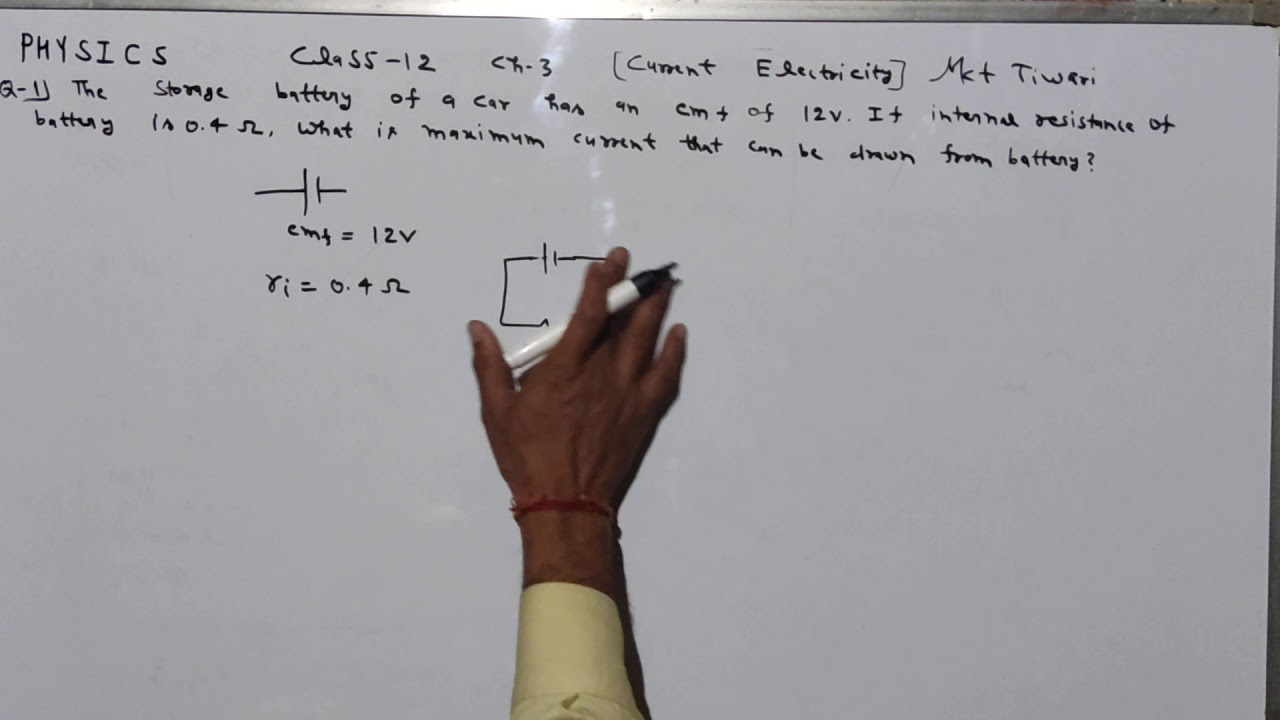 PHYSICS Class-12 Ch-3 [Current Electricity] Mkt Tiwari
Q-1) The Storage battery of a car has an emf of 12V. If internal resistance of
battery is 0.4 Ω, What is maximum current that can be drawn from battery?
emf = 12V
ri = 0.4 Ω